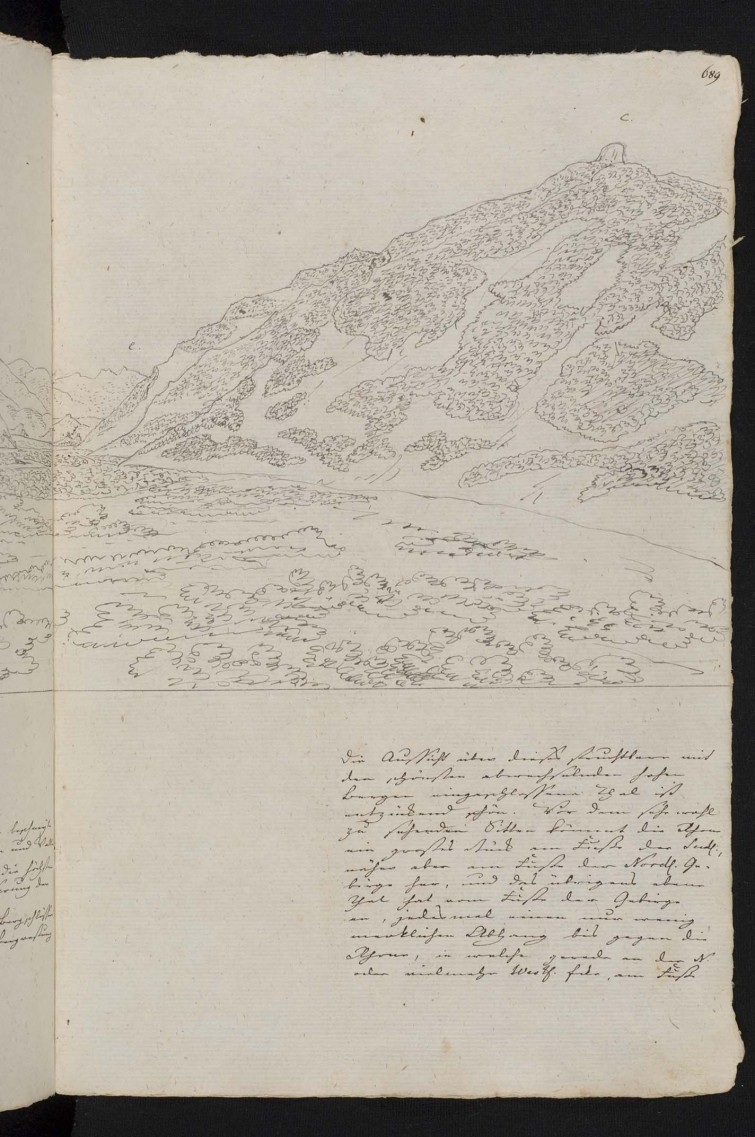 689
c.
c.
die Aussicht über dieses fruchtbare mit
den schönsten abwechselnden hohen
Bergen eingeschlossene Thal ist
entzückend schön. Vor dem sehr wohl
zu sehenden Sitten kömmt die Rhone
ein großes Stück am Fuße der Südl.,
näher aber am Fuße der Nordl. Ge-
birge her, und das übrigens ebene
Thal hat vom Fuße der Gebirge
an, jedesmal einen nur wenig
merklichen Abhang bis gegen die
Rhone, in welche gerade an der N
oder vielmehr Westl. Seite, am Fuße
und
die höchste
der